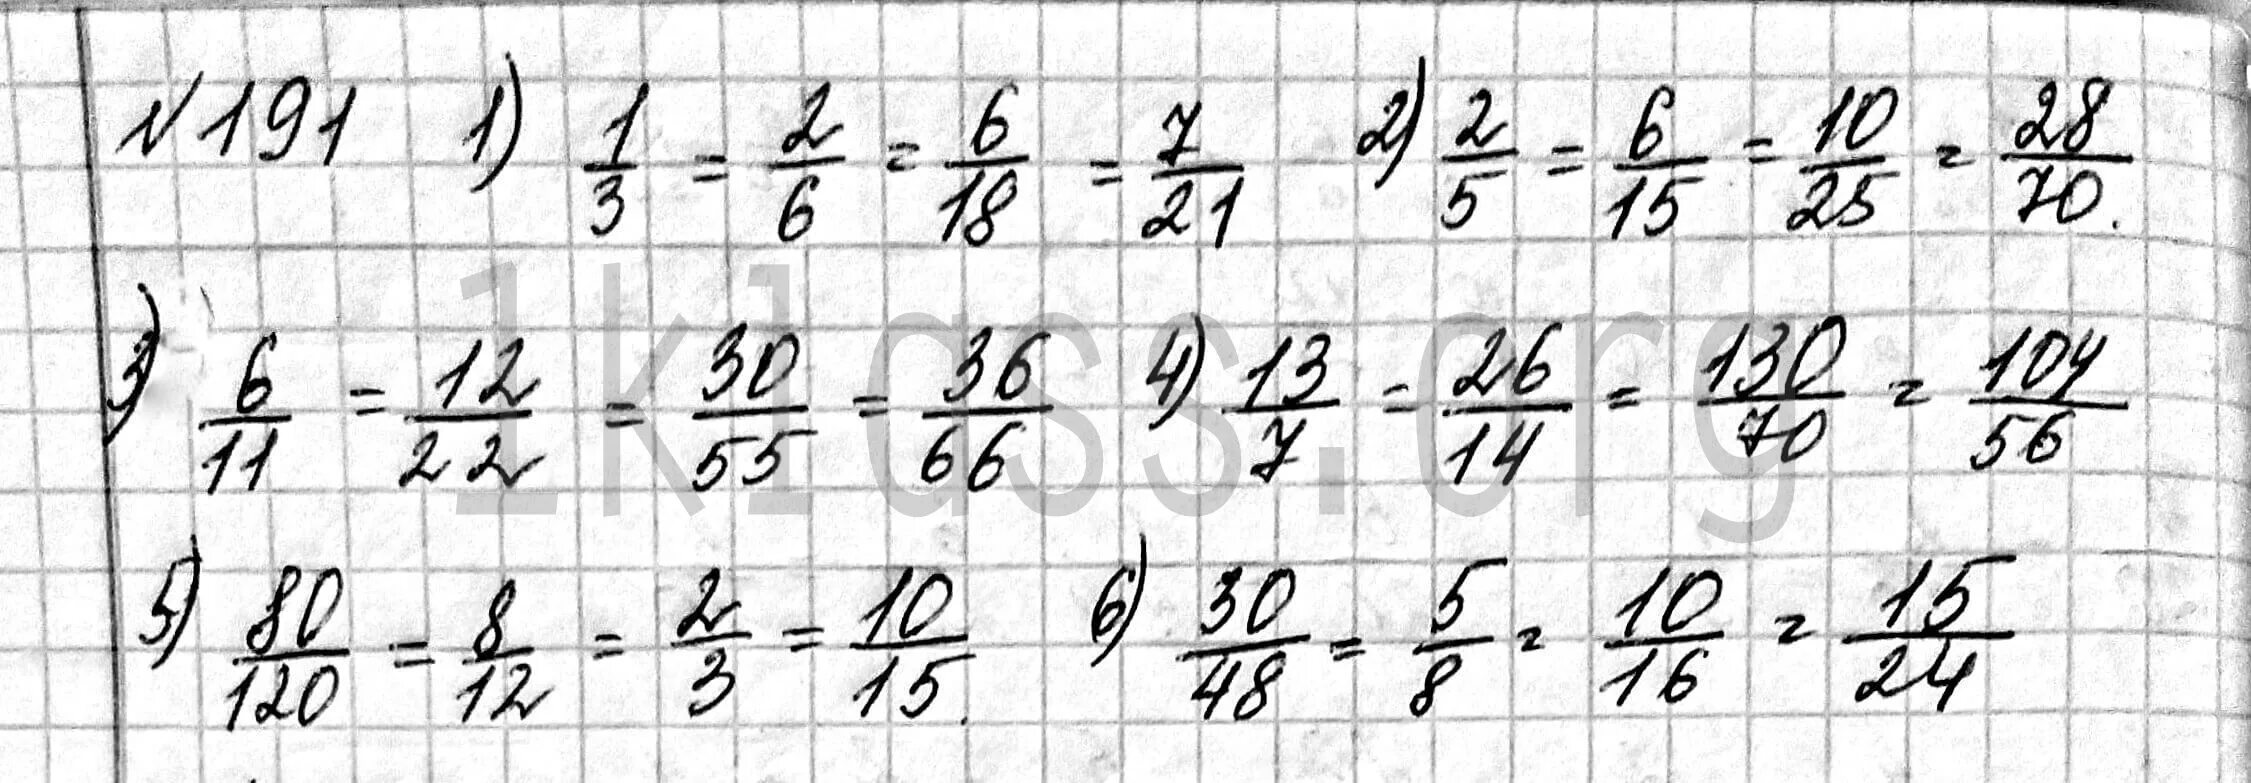 №191 1) 1/3 = 2/6 = 6/18 = 7/21 2) 2/5 = 6/15 = 10/25 = 28/70.
3) 6/11 = 12/22 = 30/55 = 36/66 4) 13/7 = 26/14 = 130/70 = 104/56
1klass.org
5) 80/120 = 8/12 = 2/3 = 10/15. 6) 30/48 = 5/8 = 10/16 = 15/24